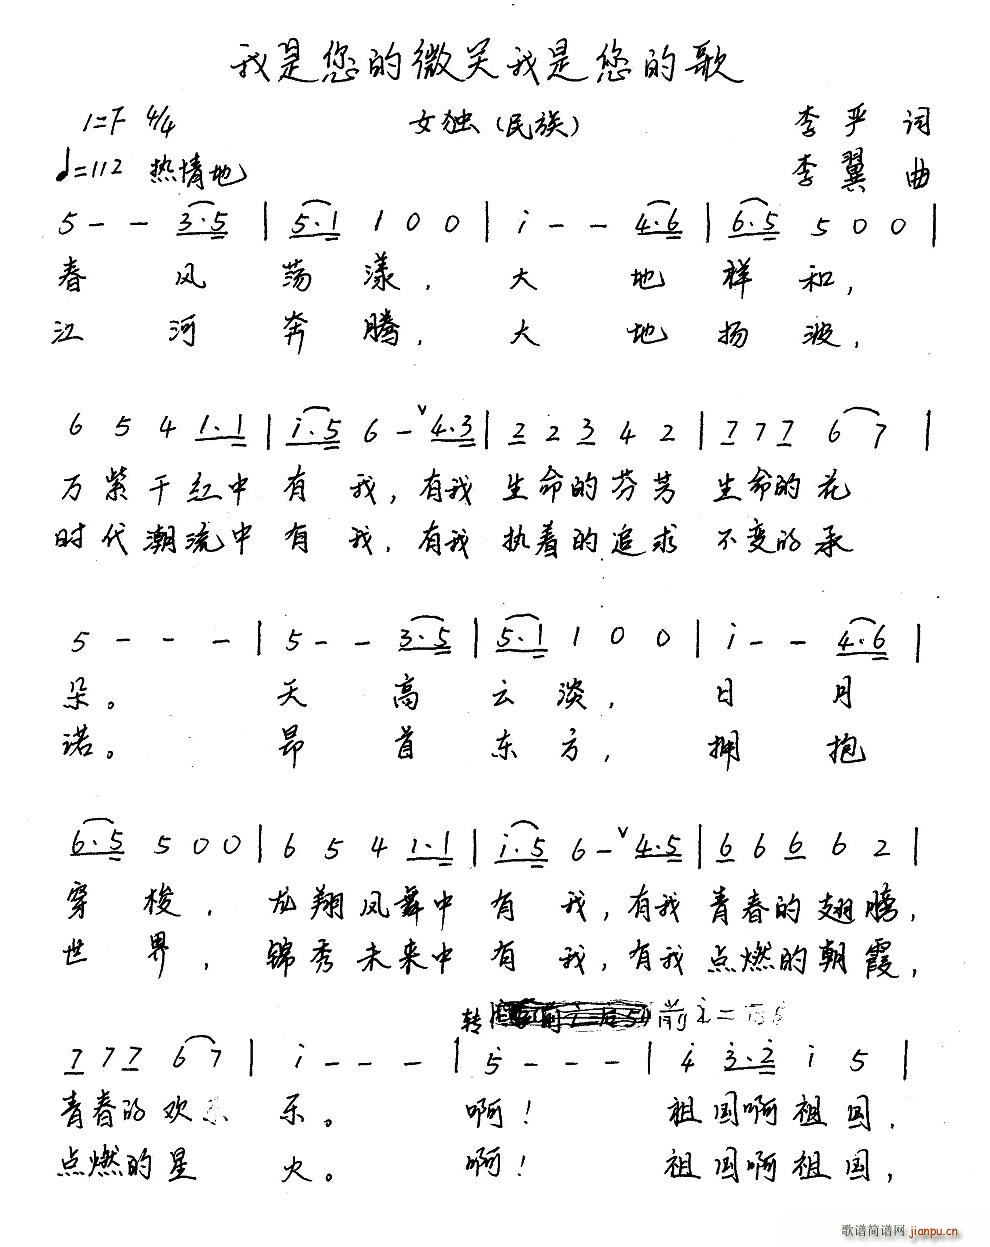 我是您的微笑我是您的歌
1=F 4/4 女独(民族) 李严 词
♩=112 热情地 李翼 曲
5 - - 3·5 | 5·1 1 0 0 | i - - 4·6 | 6·5 5 0 0 |
春风荡漾,大地祥和,
江河奔腾,大地扬波,
6 5 4 1·1 | i·5 6 - ∨4·3 | 2 2 3 4 2 | 7 7 7 6 7 |
万紫千红中有我,有我生命的芬芳生命的花
时代潮流中有我,有我执着的追求不变的承
5 - - - | 5 - - 3·5 | 5·1 1 0 0 | i - - 4·6 |
朵。天高云淡,日月
诺。昂首东方,拥抱
6·5 5 0 0 | 6 5 4 1·1 | i·5 6 - ∨4·5 | 6 6 6 6 2 |
穿梭,龙翔凤舞中有我,有我青春的翅膀,
世界,锦秀未来中有我,有我点燃的朝霞,
转 前 i =
7 7 7 6 7 | i - - - | 5 - - - | 4 3·2 i 5 |
青春的欢乐。啊!祖国啊祖国,
点燃的星火。啊!祖国啊祖国,
歌谱简谱网 jianpu.cn